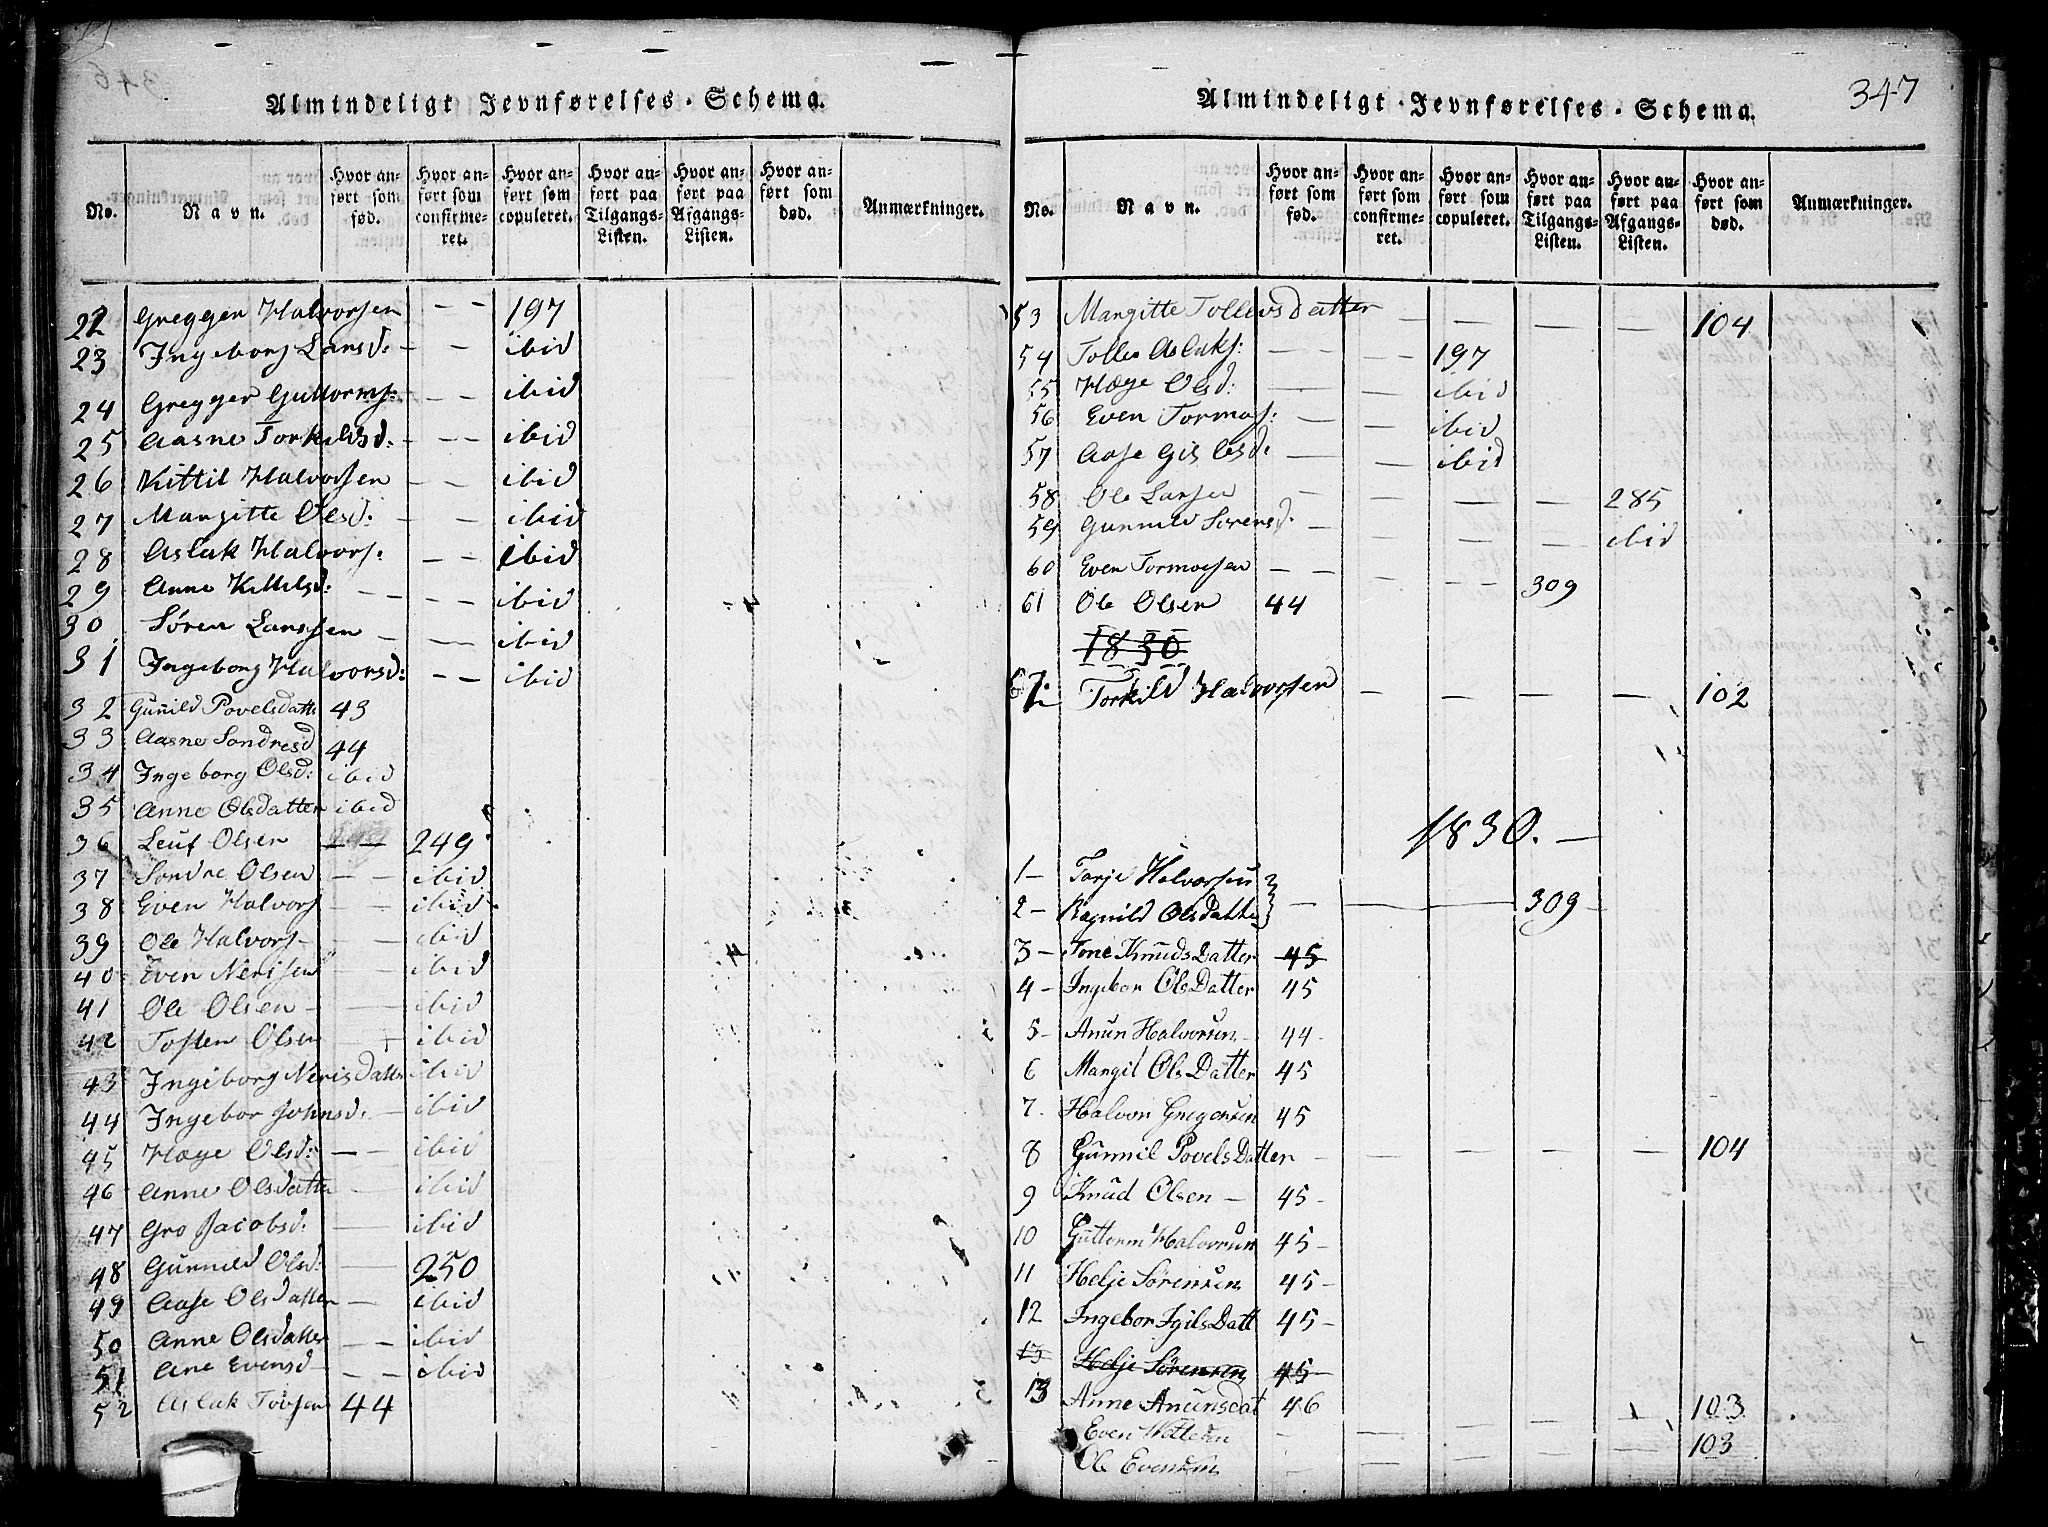 Almindeligt Jevnførelses-Schema.
No. Navn. Hvor anført som fød. Hvor anført som confirmeret. Hvor anført som copuleret. Hvor anført paa Tilgangs-Listen. Hvor anført paa Afgangs-Listen. Hvor anført som død. Anmærkninger.
22 Gregger Halvorsen — — 197
23 Ingeborg Larsd: — — ibid
24 Gregger Guttorms: — — ibid
25 Aasne Torkildsd: — — ibid
26 Kittil Halvorsen — — ibid
27 Margitte Olsd: — — ibid
28 Aslak Halvors: — — ibid
29 Anne Kittilsd: — — ibid
30 Søren Larssen — — ibid
31 Ingeborg Halvorsd: — — ibid
32 Gunild Povelsdatte 43
33 Aasne Sondresd 44
34 Ingeborg Olsd: ibid
35 Anne Olsdatter ibid
36 Leuf Olsen — — 249
37 Sondre Olsen — — ibid
38 Even Halvors — — ibid
39 Ole Halvors — — ibid
40 Even Nerisen — ibid
41 Ole Olsen — — ibid
42 Tosten Olsen — ibid
43 Ingeborg Nerisdatter ibid
44 Ingebor Johnsd. — ibid
45 Hæge Olsd: — — ibid
46 Anne Olsdatte — ibid
47 Gro Jacobsd. — ibid
48 Gunnild Olsd: — 250
49 Aase Olsdatter — ibid
50 Anne Olsdatter — — ibid
51 Ane Evensd — — ibid
52 Aslak Tovsen 44
347
Almindeligt Jevnførelses-Schema.
No. Navn. Hvor anført som fød. Hvor anført som confirmeret. Hvor anført som copuleret. Hvor anført paa Tilgangs-Listen. Hvor anført paa Afgangs-Listen. Hvor anført som død. Anmærkninger.
53 Margitte Tollevsdatter — — — — 104
54 Tolles Aslaks: — — 197
55 Hæge Olsd: — — ibid
56 Even Tormos: — — ibid
57 Aase Gislesd. — — ibid
58 Ole Larsen — — — — 285
59 Gunnild Sørensd. — — — — ibid
60 Even Tormoesen — — — — 309
61 Ole Olsen 44
1830
67. Torkild Halvorsen — — — — 102
1830. —
1 — Tarje Halvorsen
2 — Ragnild Olsdatte — — — 309
3 — Tone Knudsdatter 45
4 — Ingebor Olsdatter 45
5 — Anun Halvorsen — 44
6 Margit Olsdatter 45
7. Halvor Gregersen 45
8 Gunnil Povelsdatter — — — — — 104
9 Knud Olsen — 45 —
10 Guttorm Halvorsen 45 —
11 Helje Sørensen 45 —
12 Ingebor Igilsdatt 45 —
13 Helje Sørensen 45
13 Anne Anunsdat 46 103
Even — — — — — 103
Ole Evensen — — — — —